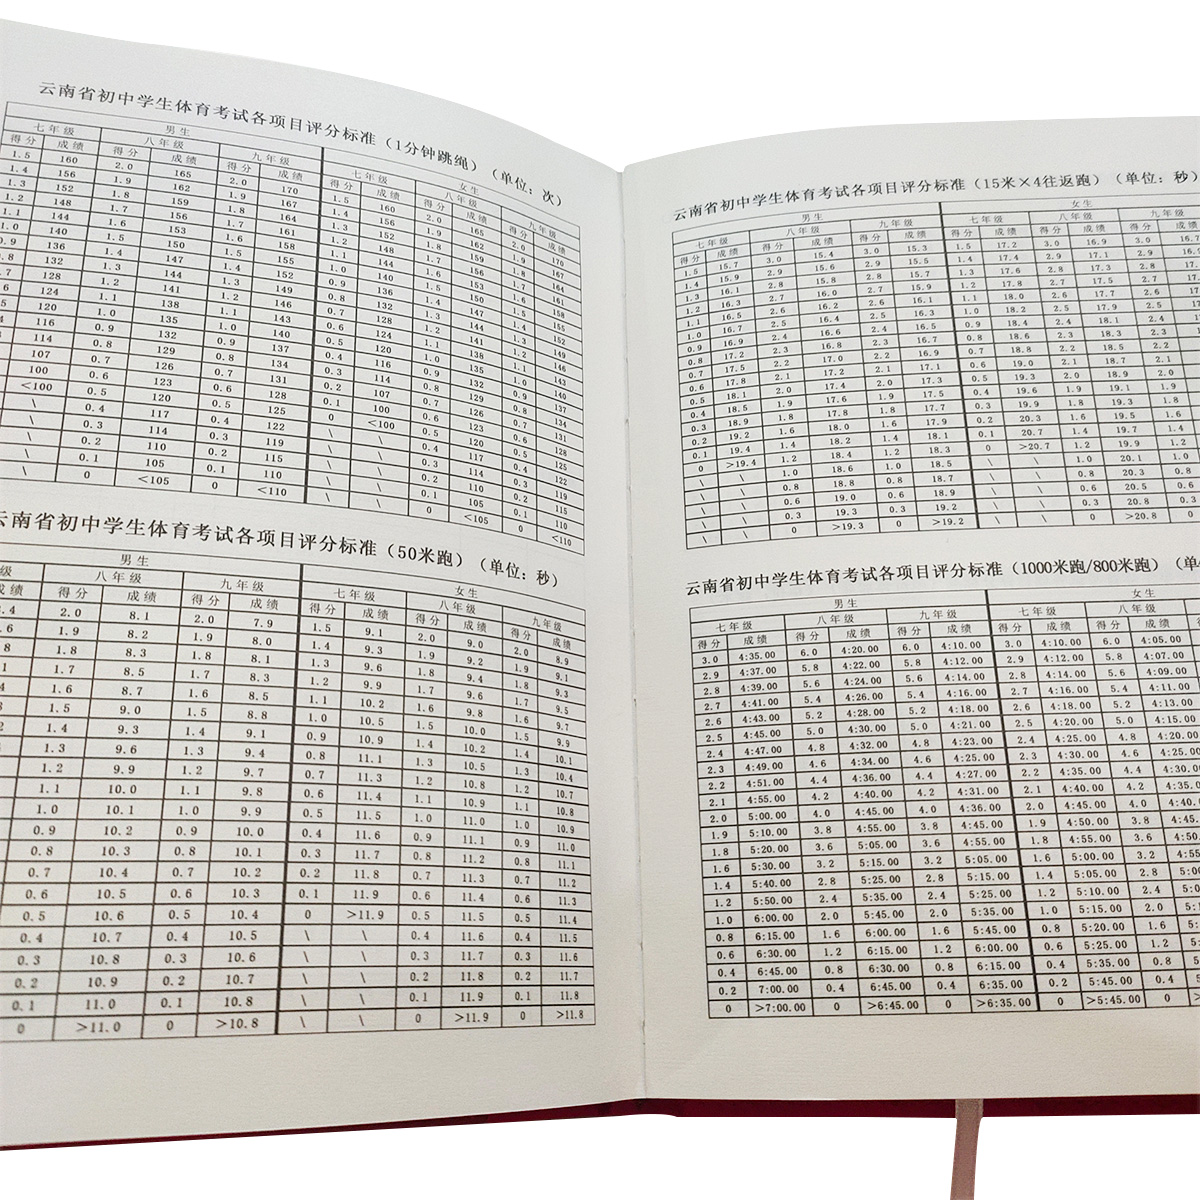 云南省初中学生体育考试各项目评分标准（1分钟跳绳）（单位：次）
男生 女生
七年级 八年级 九年级 七年级 八年级 九年级
得分 成绩 得分 成绩 得分 成绩 得分 成绩 得分 成绩 得分 成绩
1.5 160 2.0 165 2.0 170 1.5 160 2.0 165 2.0 170
1.4 156 1.9 162 1.9 167 1.4 156 1.9 162 1.9 167
1.3 152 1.8 159 1.8 164 1.3 152 1.8 159 1.8 164
1.2 148 1.7 156 1.7 161 1.2 148 1.7 156 1.7 161
1.1 144 1.6 153 1.6 158 1.1 144 1.6 153 1.6 158
1.0 140 1.5 150 1.5 155 1.0 140 1.5 150 1.5 155
0.9 136 1.4 147 1.4 152 0.9 136 1.4 147 1.4 152
132 1.3 144 1.3 149 0.8 132 1.3 144 1.3 149
128 1.2 141 1.2 146 0.7 128 1.2 141 1.2 146
124 1.1 138 1.1 143 0.6 124 1.1 138 1.1 143
120 1.0 135 1.0 140 0.5 120 1.0 135 1.0 140
116 0.9 132 0.9 137 0.4 116 0.9 132 0.9 137
114 0.8 129 0.8 134 0.3 114 0.8 129 0.8 134
107 0.7 126 0.7 131 0.2 107 0.7 126 0.7 131
100 0.6 123 0.6 128 0.1 100 0.6 123 0.6 128
<100 0.5 120 0.5 125 0 <100 0.5 120 0.5 125
\ 0.4 117 0.4 122 \ \ 0.4 117 0.4 122
\ 0.3 114 0.3 119 \ \ 0.3 114 0.3 119
\ 0.2 110 0.2 115 \ \ 0.2 110 0.2 115
\ 0.1 105 0.1 110 \ \ 0.1 105 0.1 110
\ 0 <105 0 <110 \ \ 0 <105 0 <110
云南省初中学生体育考试各项目评分标准（50米跑）（单位：秒）
男生 女生
级 八年级 九年级 七年级 八年级 九年级
成绩 得分 成绩 得分 成绩 得分 成绩 得分 成绩 得分 成绩
2.0 8.1 2.0 7.9 1.5 9.1 2.0 9.0 2.0 8.9
1.9 8.2 1.9 8.0 1.4 9.3 1.9 9.2 1.9 9.1
1.8 8.3 1.8 8.1 1.3 9.6 1.8 9.4 1.8 9.3
1.7 8.5 1.7 8.3 1.2 9.9 1.7 9.6 1.7 9.5
1.6 8.7 1.6 8.5 1.1 10.2 1.6 9.8 1.6 9.7
1.5 9.0 1.5 8.8 1.0 10.5 1.5 10.0 1.5 9.9
1.4 9.3 1.4 9.1 0.9 10.9 1.4 10.2 1.4 10.1
1.3 9.6 1.3 9.4 0.8 11.1 1.3 10.5 1.3 10.4
1.2 9.9 1.2 9.7 0.7 11.3 1.2 10.8 1.2 10.7
1.1 10.0 1.1 9.8 0.6 11.4 1.1 10.9 1.1 10.8
1.0 10.1 1.0 9.9 0.5 11.5 1.0 11.0 1.0 10.9
0.9 10.2 0.9 10.0 0.4 11.6 0.9 11.1 0.9 11.0
0.8 10.3 0.8 10.1 0.3 11.7 0.8 11.2 0.8 11.1
0.7 10.4 0.7 10.2 0.2 11.8 0.7 11.3 0.7 11.2
0.6 10.5 0.6 10.3 0.1 11.9 0.6 11.4 0.6 11.3
0.5 10.6 0.5 10.4 0 >11.9 0.5 11.5 0.5 11.4
0.4 10.7 0.4 10.5 \ \ 0.4 11.6 0.4 11.5
0.3 10.8 0.3 10.6 \ \ 0.3 11.7 0.3 11.6
0.2 10.9 0.2 10.7 \ \ 0.2 11.8 0.2 11.7
0.1 11.0 0.1 10.8 \ \ 0.1 11.9 0.1 11.8
0 >11.0 0 >10.8 \ \ 0 >11.9 0 >11.8
云南省初中学生体育考试各项目评分标准（15米×4往返跑）（单位：秒）
男生 女生
七年级 八年级 九年级 七年级 八年级 九年级
得分 成绩 得分 成绩 得分 成绩 得分 成绩 得分 成绩 得分 成绩
1.5 15.7 3.0 15.4 3.0 15.3 1.5 17.2 3.0 16.9 3.0 16.7
1.4 15.9 2.9 15.6 2.9 15.5 1.4 17.4 2.9 17.1 2.9
1.3 16.1 2.8 15.8 2.8 15.7 1.3 17.6 2.8 17.3 2.8
1.2 16.3 2.7 16.0 2.7 15.9 1.2 17.8 2.7 17.5 2.7
1.1 16.5 2.6 16.2 2.6 16.1 1.1 18.0 2.6 17.7 2.6
1.0 16.7 2.5 16.4 2.5 16.3 1.0 18.2 2.5 17.9 2.5
0.9 16.9 2.4 16.6 2.4 16.5 0.9 18.4 2.4 18.1 2.4
0.8 17.2 2.3 16.8 2.3 16.7 0.8 18.6 2.3 18.3 2.3
0.7 17.5 2.2 17.0 2.2 16.9 0.7 18.8 2.2 18.5 2.2
0.6 17.8 2.1 17.2 2.1 17.1 0.6 19.0 2.1 18.7 2.1
0.5 18.1 2.0 17.4 2.0 17.3 0.5 19.3 2.0 18.9 2.0
0.4 18.5 1.9 17.6 1.9 17.5 0.4 19.6 1.9 19.1 1.9
0.3 18.9 1.8 17.8 1.8 17.7 0.3 19.9 1.8 19.3 1.8
0.2 19.2 1.6 18.0 1.6 17.9 0.2 20.3 1.6 19.5 1.6
0.1 19.4 1.4 18.2 1.4 18.1 0.1 20.7 1.4 19.7 1.4
0 >19.4 1.2 18.4 1.2 18.3 0 >20.7 1.2 19.9 1.2
\ \ 1.0 18.6 1.0 18.5 \ \ 1.0 20.1 1.0
\ \ 0.8 18.8 0.8 18.7 \ \ 0.8 20.3 0.8
\ \ 0.6 19.0 0.6 18.9 \ \ 0.6 20.5 0.6
\ \ 0.3 19.3 0.3 19.2 \ \ 0.3 20.8 0.3
\ \ 0 >19.3 0 >19.2 \ \ 0 >20.8 0
云南省初中学生体育考试各项目评分标准（1000米跑/800米跑）（单
男生 女生
七年级 八年级 九年级 七年级 八年级
得分 成绩 得分 成绩 得分 成绩 得分 成绩 得分 成绩
3.0 4:35.00 6.0 4:20.00 6.0 4:10.00 3.0 4:10.00 6.0 4:05.00
2.9 4:37.00 5.8 4:22.00 5.8 4:12.00 2.9 4:12.00 5.8 4:07.00
2.8 4:39.00 5.6 4:24.00 5.6 4:14.00 2.8 4:14.00 5.6 4:09.00
2.7 4:41.00 5.4 4:26.00 5.4 4:16.00 2.7 4:16.00 5.4 4:11.00
2.6 4:43.00 5.2 4:28.00 5.2 4:18.00 2.6 4:18.00 5.2 4:13.00
2.5 4:45.00 5.0 4:30.00 5.0 4:21.00 2.5 4:20.00 5.0 4:15.00
2.4 4:47.00 4.8 4:32.00 4.8 4:23.00 2.4 4:25.00 4.8 4:20.00
2.3 4:49.00 4.6 4:34.00 4.6 4:25.00 2.3 4:30.00 4.6 4:25.00
2.2 4:51.00 4.4 4:36.00 4.4 4:27.00 2.2 4:35.00 4.4 4:30.00
2.1 4:55.00 4.2 4:40.00 4.2 4:31.00 2.1 4:40.00 4.2
2.0 5:00.00 4.0 4:45.00 4.0 4:36.00 2.0 4:45.00 4.0
1.9 5:10.00 3.8 4:55.00 3.8 4:45.00 1.9 4:50.00 3.8
1.8 5:20.00 3.6 5:05.00 3.6 4:55.00 1.8 4:55.00 3.6
1.6 5:30.00 3.2 5:15.00 3.2 5:05.00 1.6 5:00.00 3.2
1.4 5:40.00 2.8 5:25.00 2.8 5:15.00 1.4 5:05.00 2.8
1.2 5:50.00 2.4 5:35.00 2.4 5:25.00 1.2 5:10.00 2.4
1.0 6:00.00 2.0 5:45.00 2.0 5:35.00 1.0 5:15.00 2.0
0.8 6:15.00 1.6 6:00.00 1.6 5:45.00 0.8 5:20.00 1.6
0.6 6:30.00 1.2 6:15.00 1.2 6:00.00 0.6 5:25.00 1.2
0.4 6:45.00 0.8 6:30.00 0.8 6:15.00 0.4 5:35.00 0.8
0.2 7:00.00 0.4 6:45.00 0.4 6:35.00 0.2 5:45.00 0.4
0 >7:00.00 0 >6:45.00 0 >6:35.00 0 >5:45.00 0